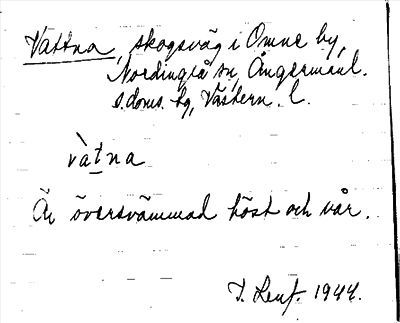 Vattna, skogsväg i Omne by,
Nordingrå sn, Ångermanl.
s. doms. hg, Västern. l.
vàtna
Är översvämmad höst och vår.
1944.